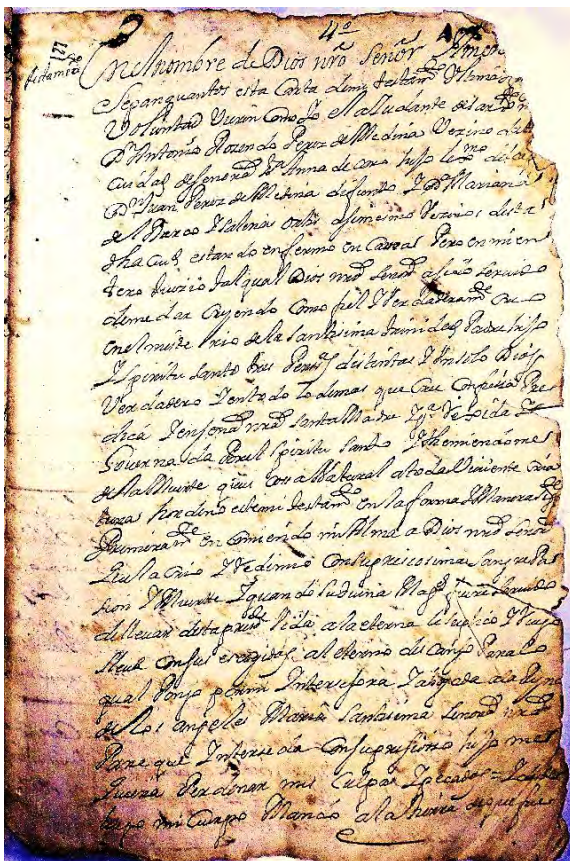 4º
127
testamto
En el nombre de Dios nro Señor Amen
Sepan quantos esta Carta de mi testamto Vltima
Voluntad Vieren Como Yo el Aiudante
Dn Antonio Rosendo Perez de Medina Vezino de
Ciudad de Señora Sta Anna de Coro hijo lexmo de
Dn Juan Perez de Medina difunto Y Da Mariana
del Barco asimismo Vezinos desta
dha Ciud estando enfermo en Cama Pero en mi en
tero Juizio tal qual Dios nro Señor a sido Seruido
de me dar Creyendo Como fiel Y Verdaderamte Creo
en el misterio de la Santissima trinidad Padre hijo
Y Spiritu Santo tres Persas distintas Y Vn solo Dios
Verdadero Y en todo lo demas que Cree Confiesa Pre
dica Y enseña nra Santa Madre Yga Rexida Y
Gouernada Por el Spiritu Santo Y themiendome
de la Muerte que es Natural a toda Viuiente Cria
tura hordeno este mi testamto en la forma Y Manera sigte
Primeramte en Comiendo mi Alma a Dios nro Señor
que la Crio Y Redimio Con su preciosima Sangre Pa
sion Y Muerte Y quando su diuina Magd fuere Seruido
de lleuar desta presente Vida a la eterna le suplico Y ruego
lleue Con sus escogidos al eterno descanso Para lo
qual Pongo Por mi Intersesora Y Abogada a la Reyna
de los angeles Maria Santissima Señora nra
Para que Interseda Con su presioso hijo me
quiera Perdonar mis Culpas Y pecados =
Cuerpo Mando a la tierra de que fue